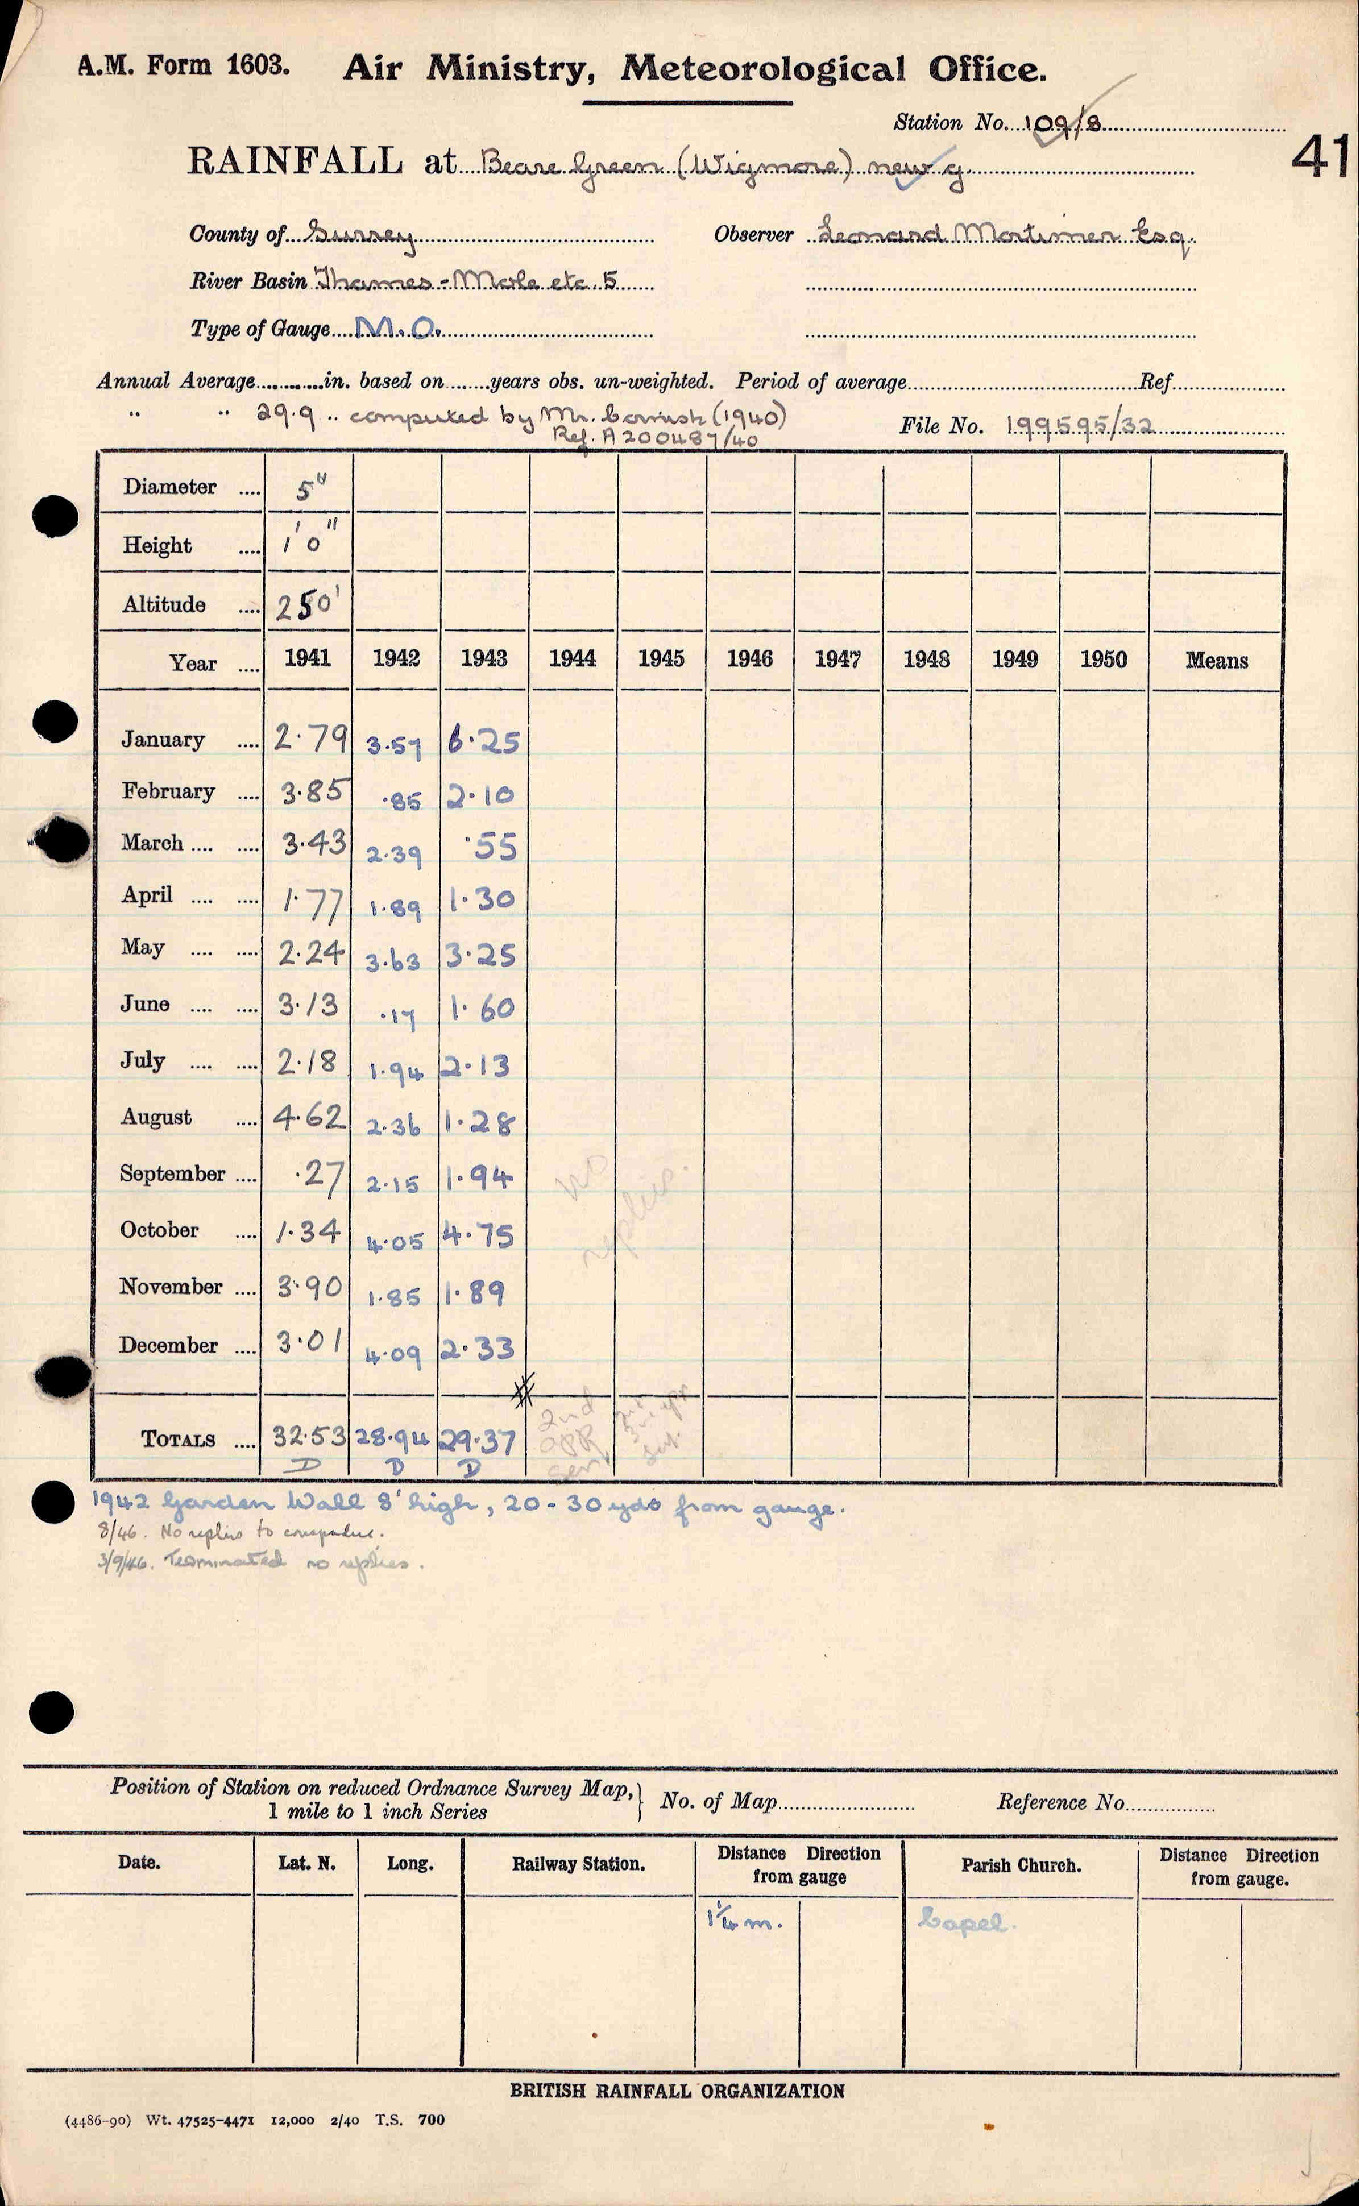 A.M. Form 1603. Air Ministry, Meteorological Office.
Station No. 109/8
41
RAINFALL at Beare Green (Wigmore) new g.
County of Surrey Observer Leonard Mortimer Esq.
River Basin Thames - Mole etc. 5
Type of Gauge M.O.
Annual Average in. based on years obs. un-weighted. Period of average Ref
" " 29.9 .. computed by Mr. Cornish (1940) File No. 199595/32
Ref. A200487/40
Diameter 5"
Height 1' 0"
Altitude 250'
Year 1941 1942 1943 1944 1945 1946 1947 1948 1949 1950 Means
January 2.79 3.57 6.25
February 3.85 .85 2.10
March 3.43 2.39 .55
April 1.77 1.89 1.30
May 2.24 3.63 3.25
June 3.13 .17 1.60
July 2.18 1.94 2.13
August 4.62 2.36 1.28
September .27 2.15 1.94
October 1.34 4.05 4.75
November 3.90 1.85 1.89
December 3.01 4.09 2.33
No replies.
TOTALS 32.53 28.94 29.37
D D D
2nd
1942 Garden Wall 8' high, 20 - 30 yds from gauge.
8/46. No replies to
3/9/46. Terminated no replies.
Position of Station on reduced Ordnance Survey Map, } No. of Map Reference No
1 mile to 1 inch Series
Date. Lat. N. Long. Railway Station. Distance Direction from gauge Parish Church. Distance Direction from gauge.
1¼ m. Capel.
BRITISH RAINFALL ORGANIZATION
(4486-90) Wt. 47525-4471 12,000 2/40 T.S. 700